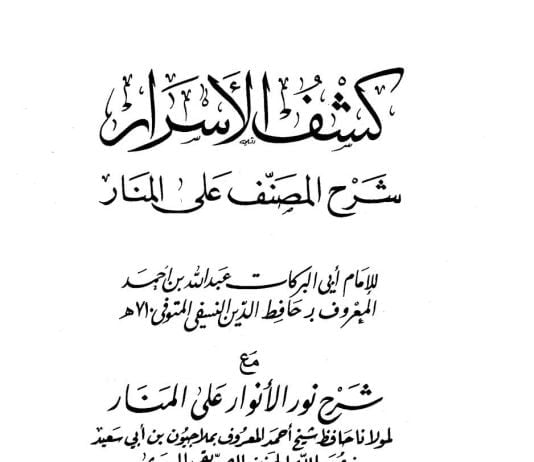 كَشْفُ الأَسْرَار
شَرْح المصَنِّف عَلى المنَار
للإمَام أَبي البركات عَبدالله بن أحمد
المعْروف بـ حَافِظ الدّين النسَفي المتَوفى ٧١٠هـ
مَع
شَرْح نور الأنوار عَلى المنَار
لمولانا حَافظ شيخ أحمد المعروف بملاجيون بن أبي سعيد